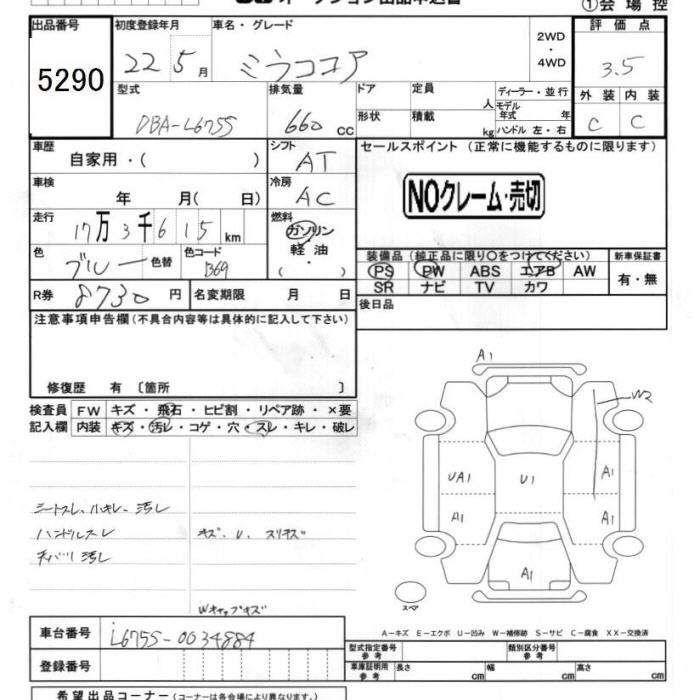 ①会場控
出品番号
5290
初度登録年月
22 5月
車名・グレード
ミラココア
2WD
・
4WD
評価点
3.5
型式
DBA-L675S
排気量
660 cc
ドア
定員
人
形状
積載
kg
ディーラー・並行
モデル年式 年
ハンドル 左・右
外装 内装
C C
車歴
自家用・( )
シフト
AT
セールスポイント (正常に機能するものに限ります)
車検
年 月( 日)
冷房
AC
NOクレーム・売切
走行
17万3千615km
燃料
ガソリン
軽油
・( )
色
ブルー
色替
色コード
B69
装備品 (純正品に限り○をつけてください)
新車保証書
PS PW ABS エアB AW
SR ナビ TV カワ
有・無
R券
8730円
名変期限 月 日
後日品
注意事項申告欄(不具合内容等は具体的に記入して下さい)
修復歴 有 〔箇所 〕
検査員
記入欄
FW キズ・飛石・ヒビ割・リペア跡・×要
内装 キズ・汚レ・コゲ・穴・スレ・キレ・破レ
シートスレ、小キレ、汚レ
ハンドルスレ
キズ、U、スリキズ
天バリ汚レ
Wキャップキズ
A1
W2
UA1
U1
A1
A1
A1
A1
スペア
A-キズ E-エクボ U-凹み W-補修跡 S-サビ C-腐食 XX-交換済
車台番号
L675S-0034884
登録番号
型式指定番号
参考
類別区分番号
参考
車庫証明用
参考
長さ cm
幅 cm
高さ cm
希望出品コーナー(コーナーは各会場により異なります。)